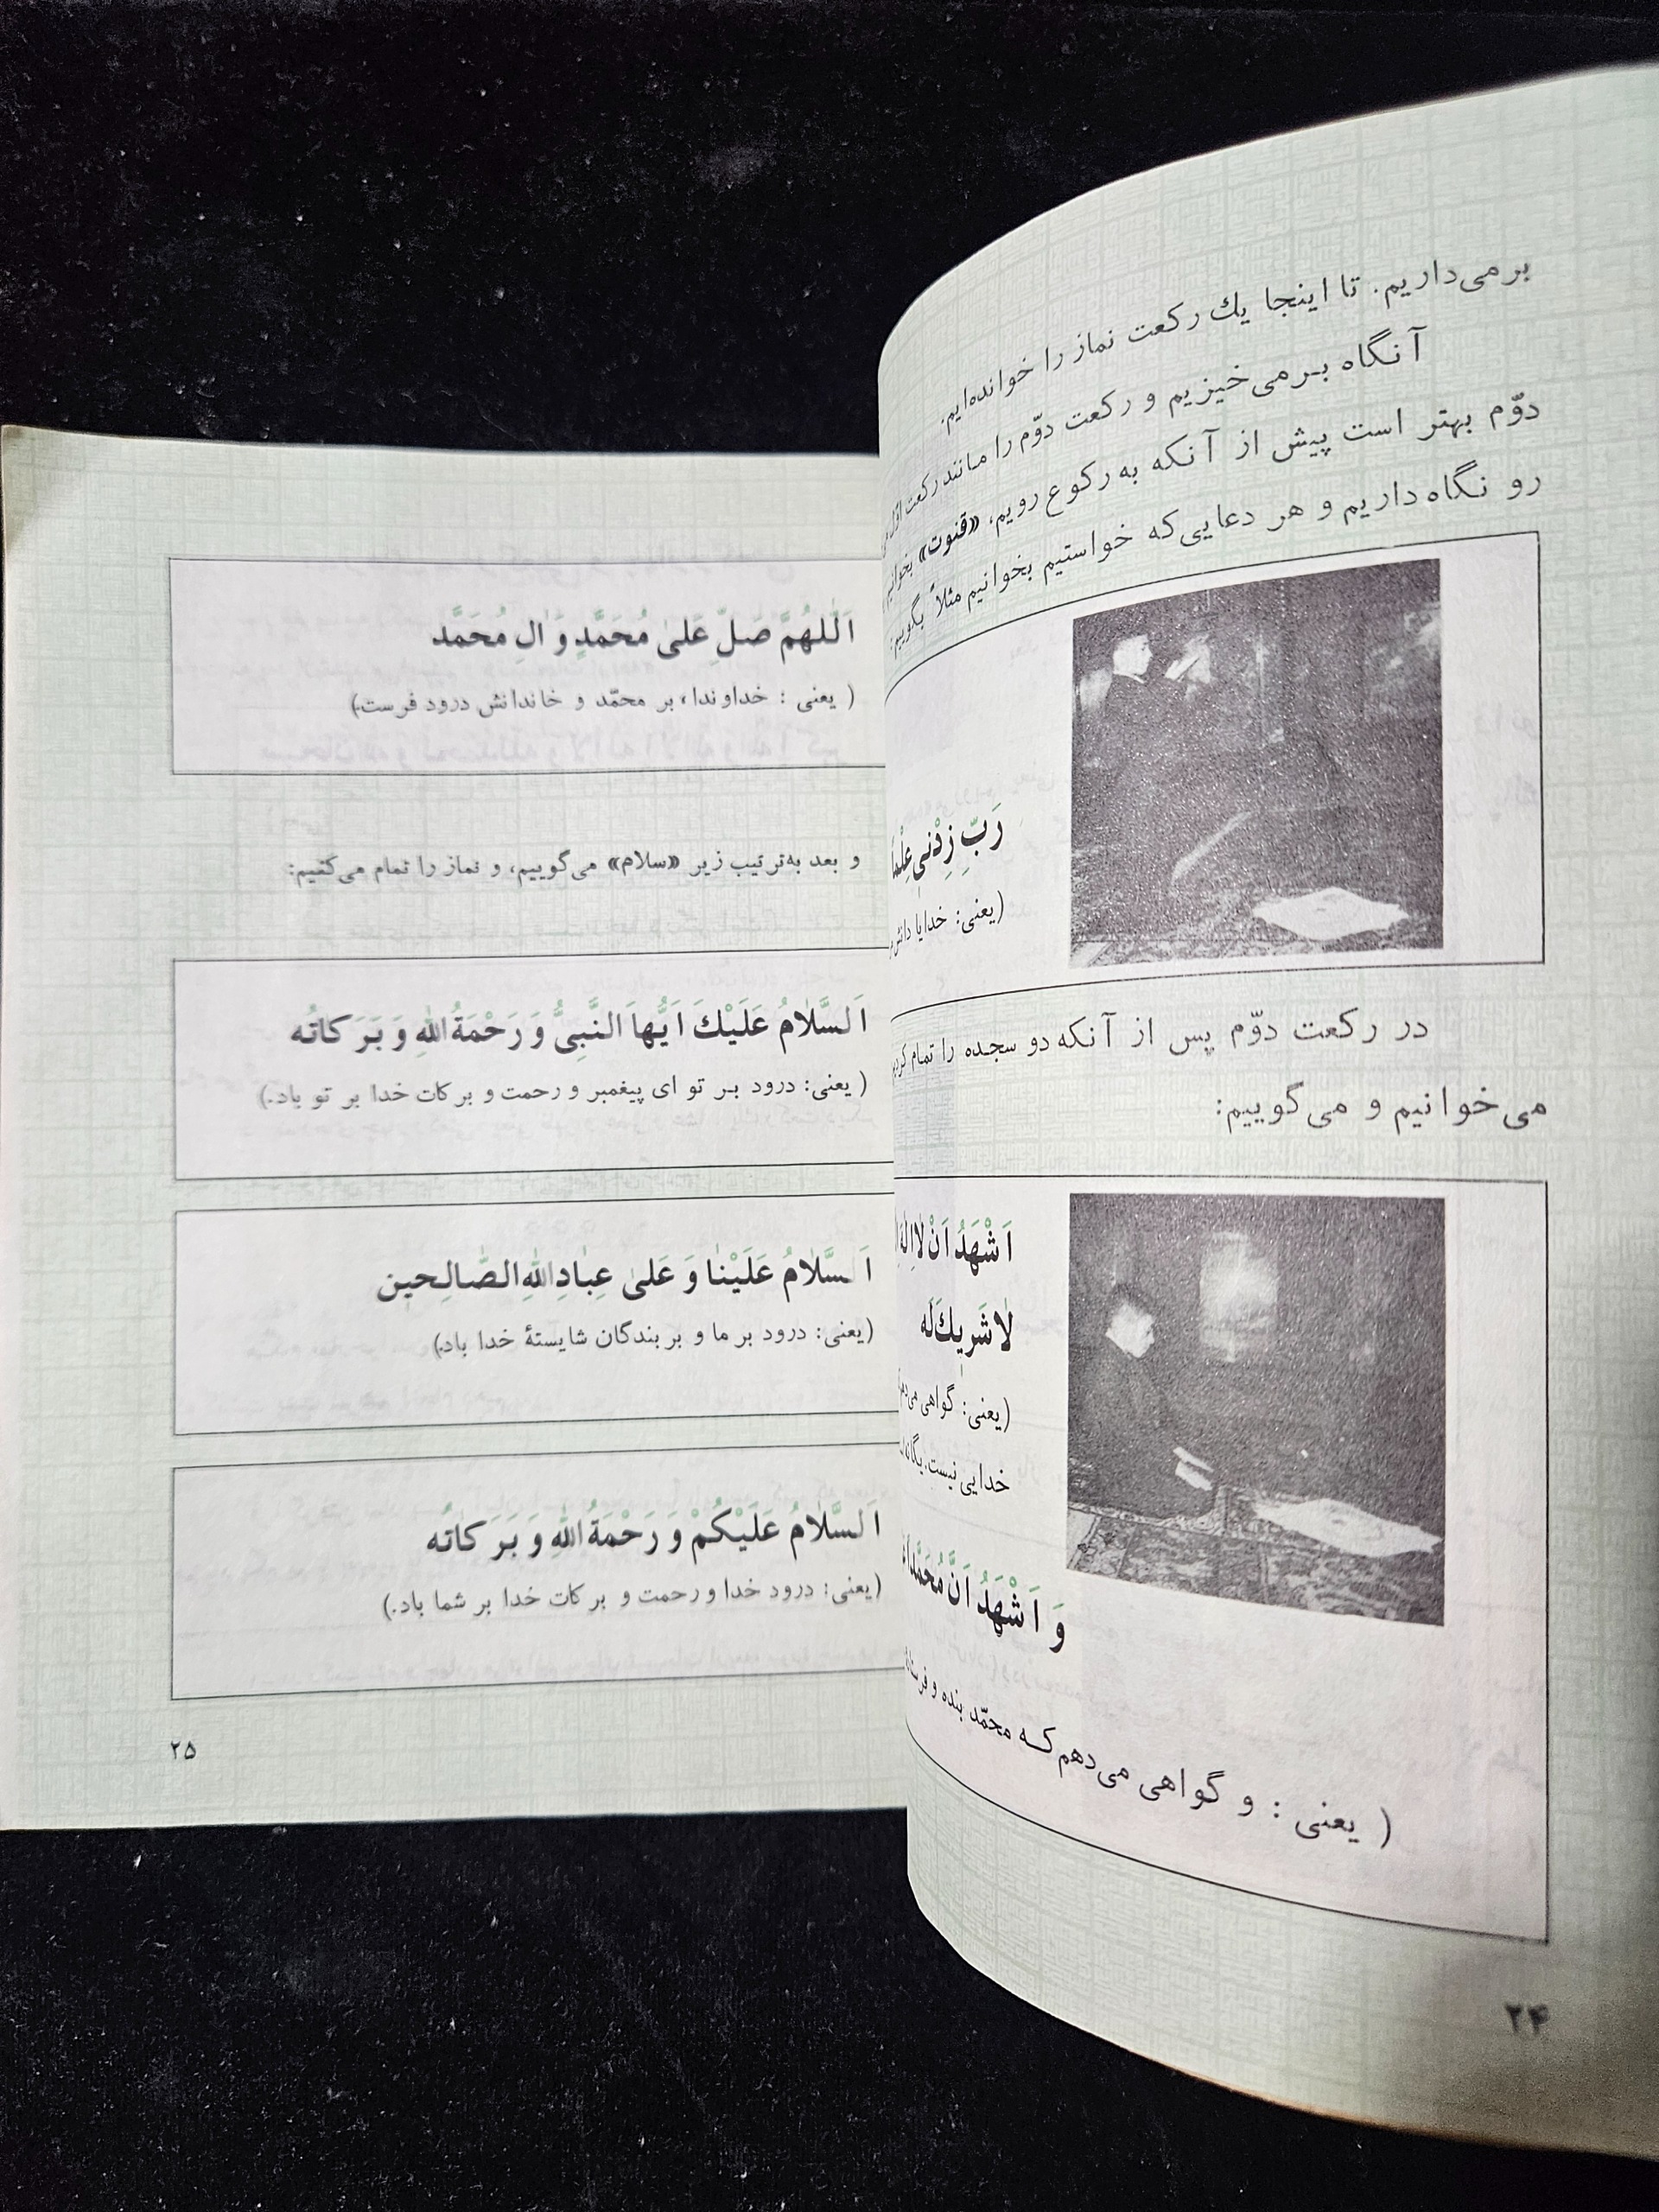 برمی‌داریم. تا اینجا یك رکعت نماز را خوانده‌ایم.
آنگاه برمی‌خیزیم و رکعت دوّم را مانند رکعت اوّل
دوّم بهتر است پیش از آنکه به رکوع رویم، «قنوت» بخوانیم
رو نگاه داریم و هر دعایی‌که خواستیم بخوانیم مثلاً بگوییم:
رَبِّ زِدْنی عِلْماً
(یعنی: خدایا دانش
در رکعت دوّم پس از آنکه دو سجده را تمام
می‌خوانیم و می‌گوییم:
اَشْهَدُ اَنْ لااِلٰهَ
لاشَریكَ لَه
(یعنی: گواهی
خدایی نیست،
وَ اَشْهَدُ اَنَّ مُحَمَّداً
( یعنی : و گواهی می‌دهم که محمّد بنده و
۲۴
اَللّهُمَّ صَلِّ عَلیٰ مُحَمَّدٍ وَ الِ مُحَمَّد
( یعنی : خداوندا، بر محمّد و خاندانش درود فرست.)
و بعد به‌ترتیب زیر «سلام» می‌گوییم، و نماز را تمام می‌کنیم:
اَلسَّلامُ عَلَیْكَ اَیُّهاَ النَّبِیُّ وَ رَحْمَةُ اللّٰهِ وَ بَرَکاتُه
( یعنی: درود بر تو ای پیغمبر و رحمت و برکات خدا بر تو باد.)
اَلسَّلامُ عَلَیْنٰا وَ عَلیٰ عِبٰادِ اللّٰهِ الصّٰالِحین
(یعنی: درود بر ما و بر بندگان شایستۀ خدا باد.)
اَلسَّلامُ عَلَیْکُمْ وَ رَحْمَةُ اللّٰهِ وَ بَرَکاتُه
(یعنی: درود خدا و رحمت و برکات خدا بر شما باد.)
۲۵